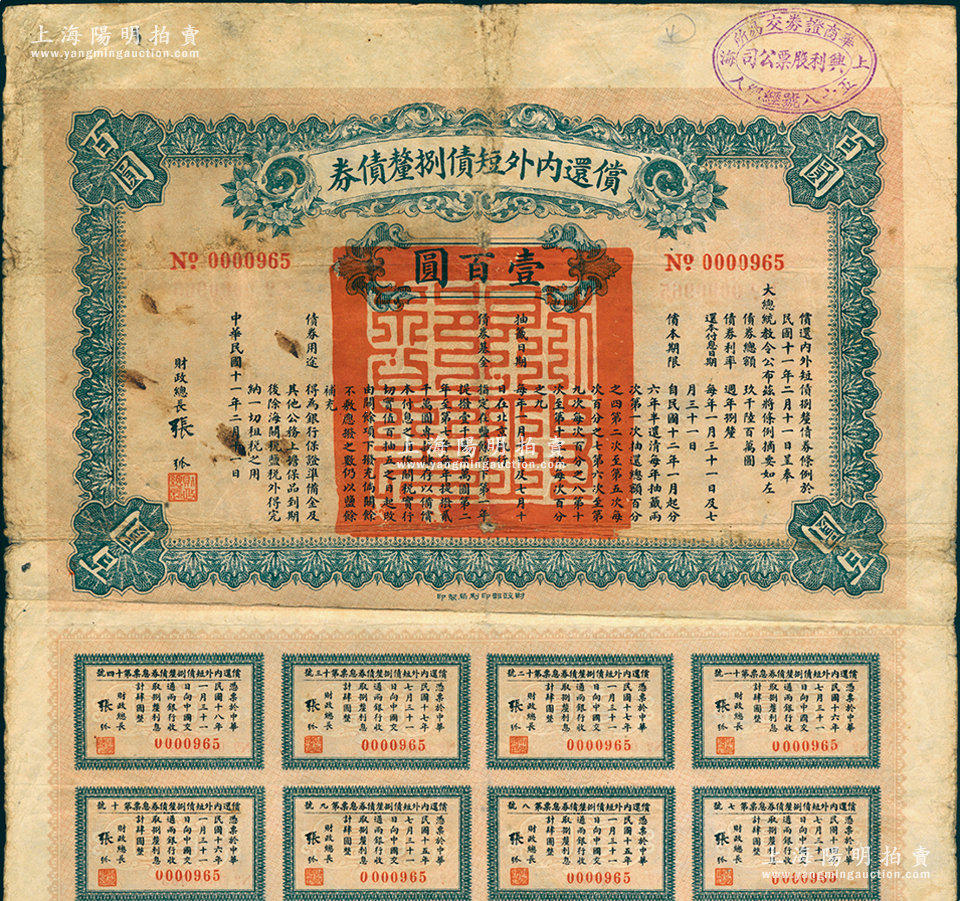 上海陽明拍賣
www.yangmingauction.com
華商證券交易所
興利股票公司
上海
五六八號經紀人
百圓
百圓
償還內外短債捌釐債券
壹百圓
No 0000965
No 0000965
償還內外短債捌釐債券條例於
民國十一年二月十一日呈奉
大總統教令公布茲將條例摘要如左
債券總額 玖千陸百萬圓
債券利率 週年捌釐
還本付息日期 每年一月三十一日及七
月三十一日
償本期限 自民國十二年一月起分
六年半還清每年抽籤兩
次第一次抽還總額百分
之四第二次至第五次每
次百分之七第六次至第
九次每次百分之八第十
次至第十三次每次百分
之九
抽籤日期 每年一月十日及七月十
日在北京執行
債券基金 指定在鹽餘項下第一年
提撥壹千百萬圓第二
年至第七年每年提撥貳
千萬圓專款儲存以備償
本付息之用俟關稅實行
切實值百抽五之日起改
由關餘項下撥充倘關餘
不敷應撥之數仍以鹽餘
補充
債券用途 得為銀行保證準備金及
其他公務上擔保品到期
後除海關稅鹽稅外得完
納一切租稅之用
中華民國十一年二月 日
財政總長 張弧
百圓
百圓
財政部印刷局製印
償還內外短債捌釐債券息票第十一號
憑票於中華
民國十六年
七月三十一
日向中國交
通兩銀行收
取捌釐利息
計肆圓整
財政總長
張弧
0000965
償還內外短債捌釐債券息票第十二號
憑票於中華
民國十七年
一月三十一
日向中國交
通兩銀行收
取捌釐利息
計肆圓整
財政總長
張弧
0000965
償還內外短債捌釐債券息票第十三號
憑票於中華
民國十七年
七月三十一
日向中國交
通兩銀行收
取捌釐利息
計肆圓整
財政總長
張弧
0000965
償還內外短債捌釐債券息票第十四號
憑票於中華
民國十八年
一月三十一
日向中國交
通兩銀行收
取捌釐利息
計肆圓整
財政總長
張弧
0000965
償還內外短債捌釐債券息票第七號
憑票於中華
民國十四年
七月三十一
日向中國交
通兩銀行收
取捌釐利息
計肆圓整
財政總長
張弧
0000965
償還內外短債捌釐債券息票第八號
憑票於中華
民國十五年
一月三十一
日向中國交
通兩銀行收
取捌釐利息
計肆圓整
財政總長
張弧
0000965
償還內外短債捌釐債券息票第九號
憑票於中華
民國十五年
七月三十一
日向中國交
通兩銀行收
取捌釐利息
計肆圓整
財政總長
張弧
0000965
償還內外短債捌釐債券息票第十號
憑票於中華
民國十六年
一月三十一
日向中國交
通兩銀行收
取捌釐利息
計肆圓整
財政總長
張弧
0000965
上海陽明拍賣
www.yangmingauction.com